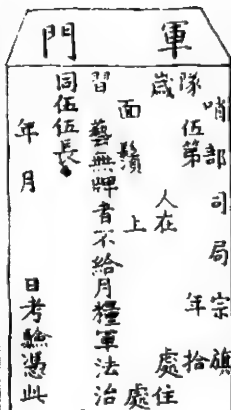 軍門
哨部司局宗旗
隊伍第年拾
歲人在處住
面鬚上處
習藝無牌者不給月糧軍法治
同伍伍長
年月日考驗憑此